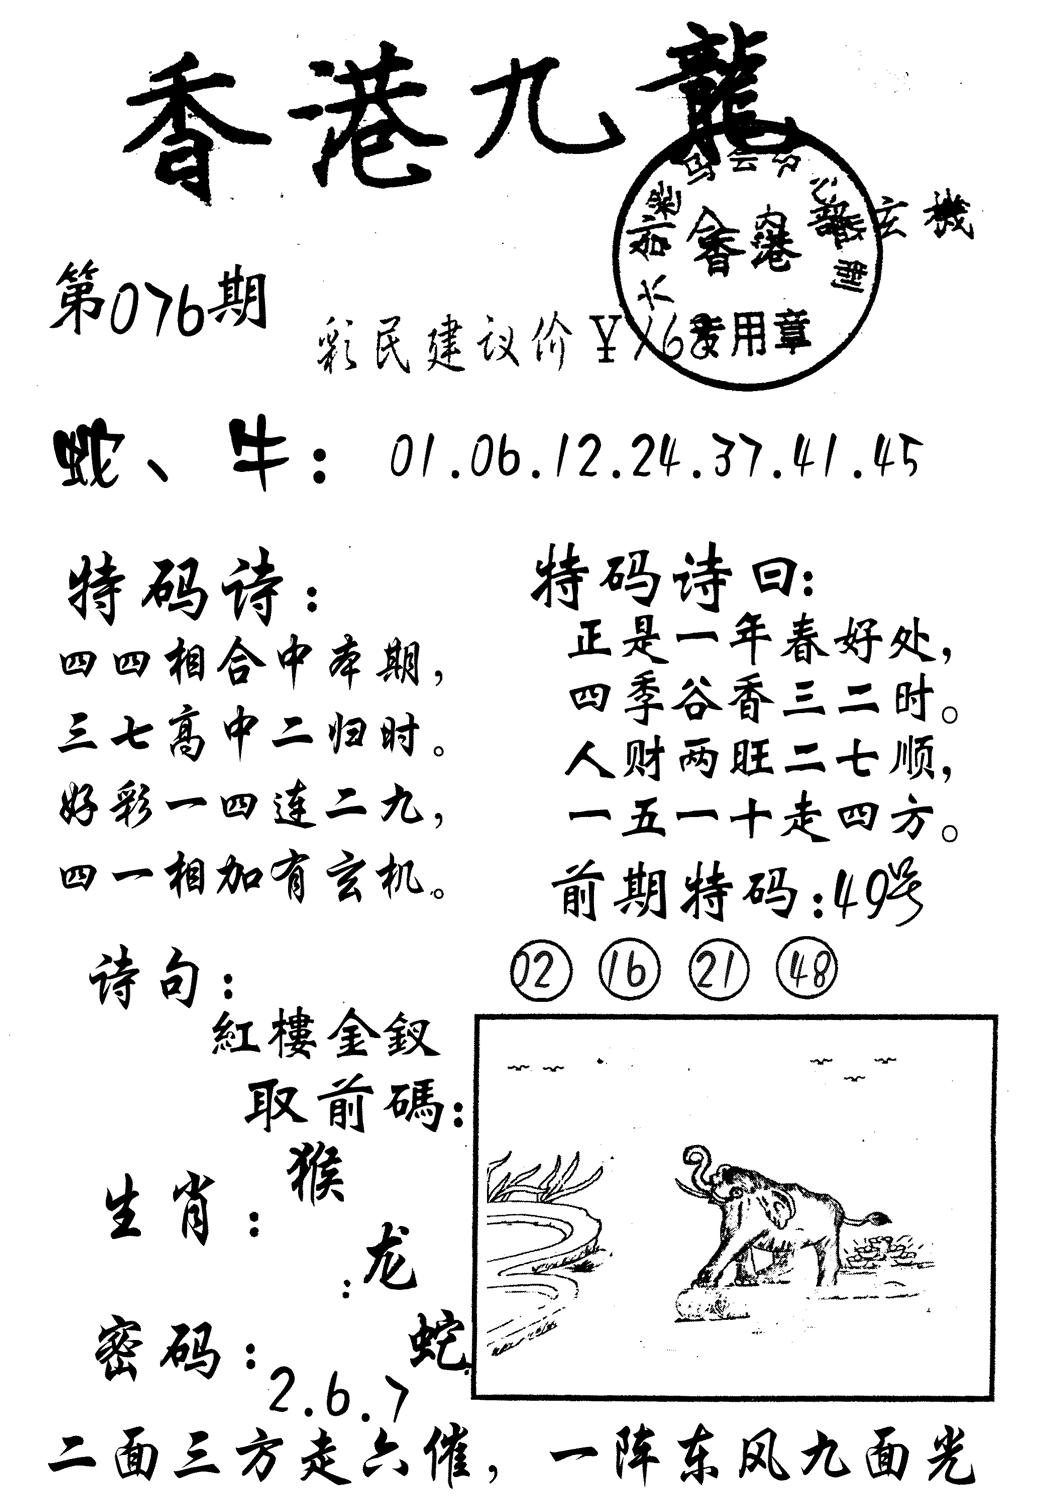 香港九龍
玄機
香港
专用章
第076期
彩民建议价¥168
蛇、牛：01.06.12.24.37.41.45
特码诗：
四四相合中本期，
三七高中二归时。
好彩一四连二九，
四一相加有玄机。
特码诗曰：
正是一年春好处，
四季谷香三二时。
人财两旺二七顺，
一五一十走四方。
前期特码：49号
02 16 21 48
诗句：
紅樓金釵
取前碼：
生肖：猴
：龙
蛇
密码：2.6.7
二面三方走六催，一阵东风九面光